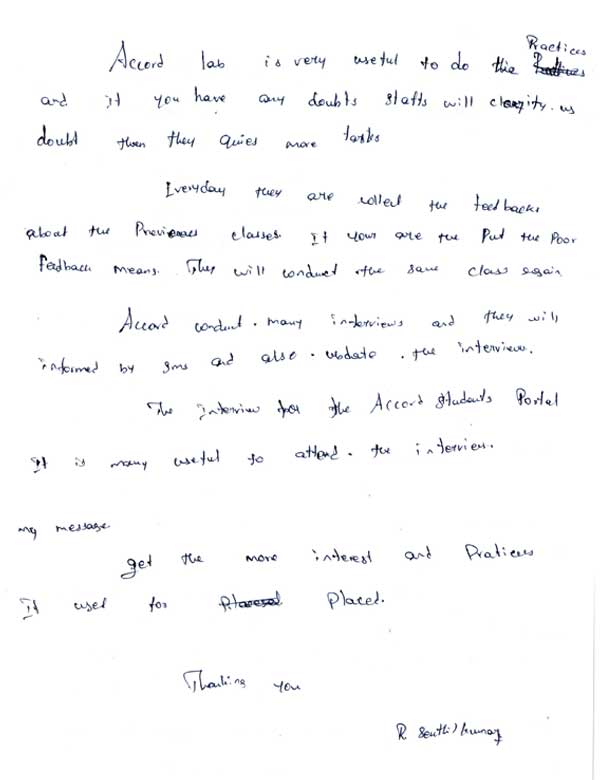 Practices
Accord lab is very useful to do the
and if you have any doubts staffs will clarify us
doubt then they quies more tasks
Everyday they are collect the feedbacks
about the Previous classes. If your are the Put the Poor
feedback means. They will conduct the same class again
Accord conduct. many interviews and they will
informed by sms and also. update. the interview.
The interview for the Accord students Portal
It is many useful to attend. the interview.
my message
get the more interest and Pratices
It used for Placed.
Thanking you
R Senthilkumar